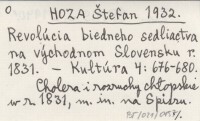 O
HOZA Štefan 1932.
Revolúcia biedneho sedliactva
na východnom Slovensku r.
1831. – Kultúra 4: 676-680.
Cholera i rozruchy chłopskie
w r. 1831, m. in. na Spiszu.